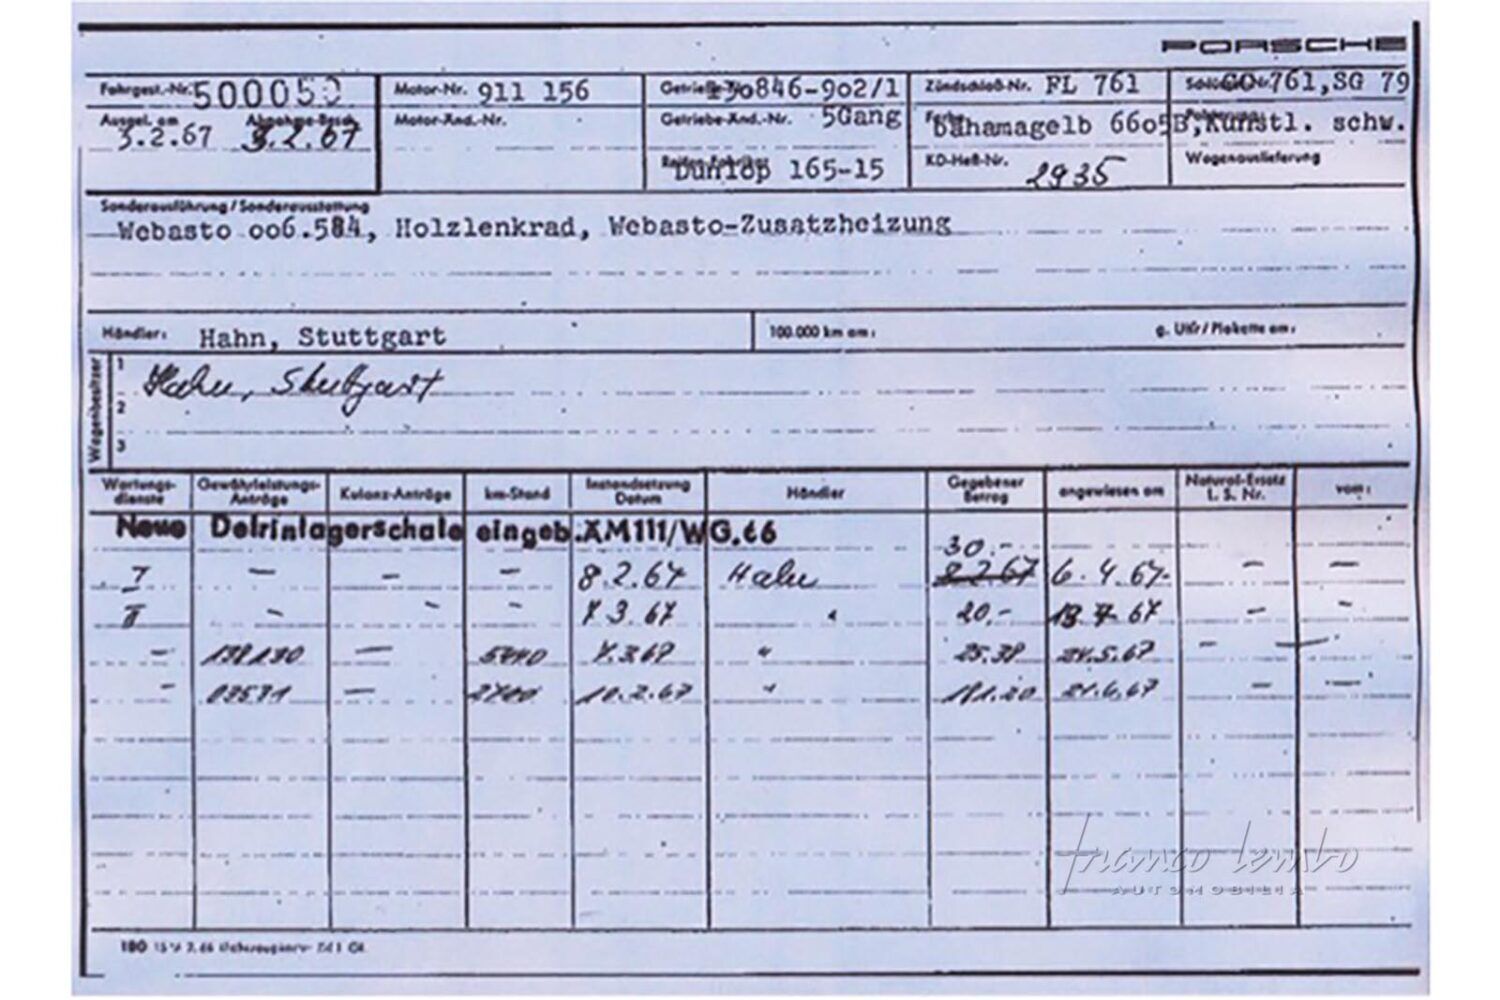 PORSCHE
Fahrgest.-Nr. 500050 Motor-Nr. 911 156 846-902/1 Zündschloß-Nr. FL 761 761, SG 79
Ausgel. am 3.2.67 3.2.67 Motor-Änd.-Nr. Getriebe-Änd.-Nr. 5Gang Bahamagelb 6605B, Kunstl. schw.
Dunlop 165-15 KD-Heft-Nr. 2935 Wagenauslieferung
Sonderausführung / Sonderausstattung
Webasto 006.584, Holzlenkrad, Webasto-Zusatzheizung
Händler: Hahn, Stuttgart 100.000 km am: g. Uhr/Plakette am:
Wagenbesitzer
1 Hahn, Stuttgart
2
3
Wartungs-dienste Gewährleistungs-Anträge Kulanz-Anträge km-Stand Instandsetzung Datum Händler Gegebener Betrag angewiesen am Natural-Ersatz L. S. Nr. vom:
Neue Delrinlagerschale eingeb. ÄM111/WG.66
30.-
I – – – 8.2.67 Hahn 8.2.67 6.4.67 – –
II – – – 7.3.67 " 20.- 67 – –
– – 7.3.67 " 25.38 24.5.67 – –
– – 10.2.67 " 181.20 21.6.67 – –
franco lembo
AUTOMOBILIA